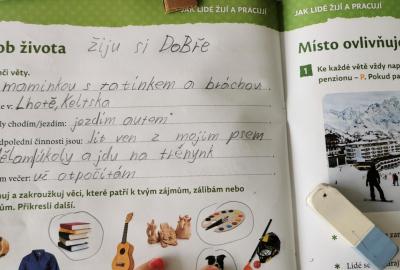 JAK LIDÉ ŽIJÍ A PRACUJÍ
ob života žiju si DoBře
nči věty.
maminkou s tatínkem a bráchou
e v: Lhotě, Keltska
ly chodím/jezdím: jezdím autem
odpolední činností jsou: jít ven z mojim psem
a jdu na trénynk
m večer: už odpočítám
nuj a zakroužkuj věci, které patří k tvým zájmům, zálibám nebo
ům. Přikresli další.
JAK LIDÉ ŽIJÍ A PRACUJÍ
Místo ovlivňuje
1 Ke každé větě vždy nap
penzionu – P. Pokud pa
Lidé se